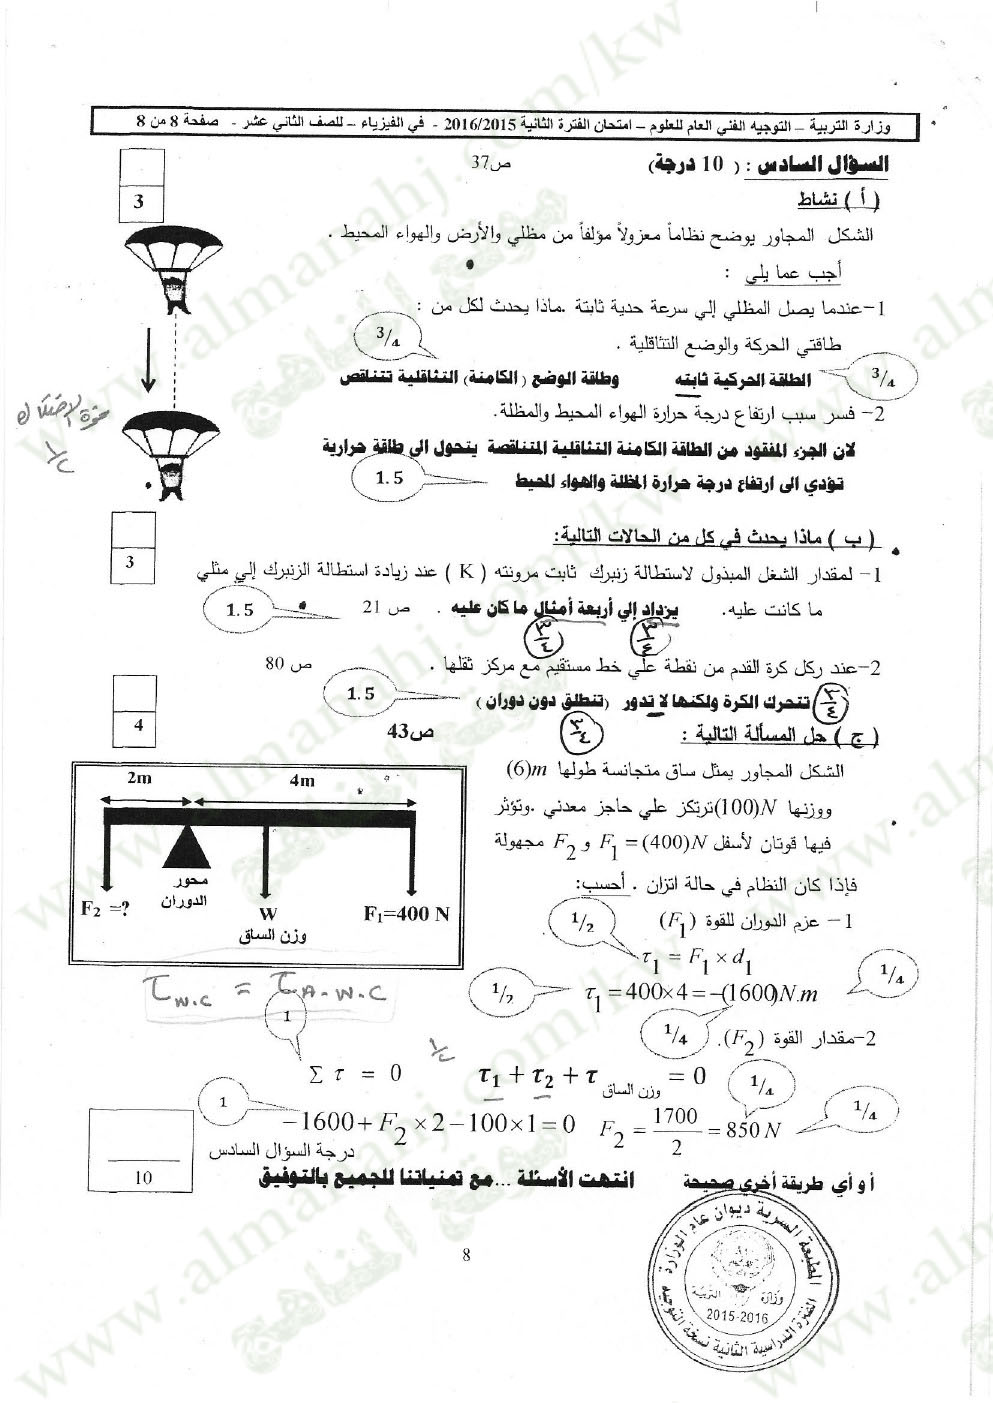 وزارة التربية – التوجيه الفني العام للعلوم – امتحان الفترة الثانية 2016/2015 - في الفيزياء – للصف الثاني عشر - صفحة 8 من 8
السؤال السادس : ( 10 درجة) ص37
3
( أ ) نشاط
الشكل المجاور يوضح نظاماً معزولاً مؤلفاً من مظلي والأرض والهواء المحيط .
أجب عما يلي :
1-عندما يصل المظلي إلي سرعة حدية ثابتة .ماذا يحدث لكل من :
طاقتي الحركة والوضع التثاقلية .
3/4
الطاقة الحركية ثابته وطاقة الوضع (الكامنة) التثاقلية تتناقص
3/4
2- فسر سبب ارتفاع درجة حرارة الهواء المحيط والمظلة.
لان الجزء المفقود من الطاقة الكامنة التثاقلية المتناقصة يتحول الى طاقة حرارية
تؤدي الى ارتفاع درجة حرارة المظلة والهواء المحيط
1.5
3
( ب ) ماذا يحدث في كل من الحالات التالية:
1- لمقدار الشغل المبذول لاستطالة زنبرك ثابت مرونته ( K ) عند زيادة استطالة الزنبرك إلي مثلي
ما كانت عليه. يزداد إلى أربعة أمثال ما كان عليه . ص 21
1.5
٣/٤ ٣/٤
2-عند ركل كرة القدم من نقطة علي خط مستقيم مع مركز ثقلها . ص 80
٣/٤ تتحرك الكرة ولكنها لا تدور (تنطلق دون دوران )
1.5
٣/٤
4
( ج ) حل المسألة التالية : ص43
الشكل المجاور يمثل ساق متجانسة طولها m(6)
ووزنها N(100)ترتكز علي حاجز معدني .وتؤثر
فيها قوتان لأسفل F₁ = (400)N و F₂ مجهولة
فإذا كان النظام في حالة اتزان . أحسب:
2m
4m
محور
الدوران
F₂ =?
W
وزن الساق
F₁=400 N
1- عزم الدوران للقوة (F₁)
1/2
τ₁ = F₁ × d₁
τ₁ = 400×4 = –(1600)N.m
1/2
1/4
1/4
τ W.C = τ A.W.C
2-مقدار القوة (F₂).
1
Σ τ = 0 τ₁ + τ₂ + τ وزن الساق = 0
1/4
−1600 + F₂ × 2 − 100 × 1 = 0 F₂ = 1700/2 = 850 N
1
1/4
درجة السؤال السادس
10
أ و أي طريقة أخرى صحيحة انتهت الأسئلة ...مع تمنياتنا للجميع بالتوفيق
المطبعة السرية ديوان عام الوزارة
وزارة التربية
2015-2016
الفترة الدراسية الثانية نسخة التوجيه
8
www.almanahj.com/kw